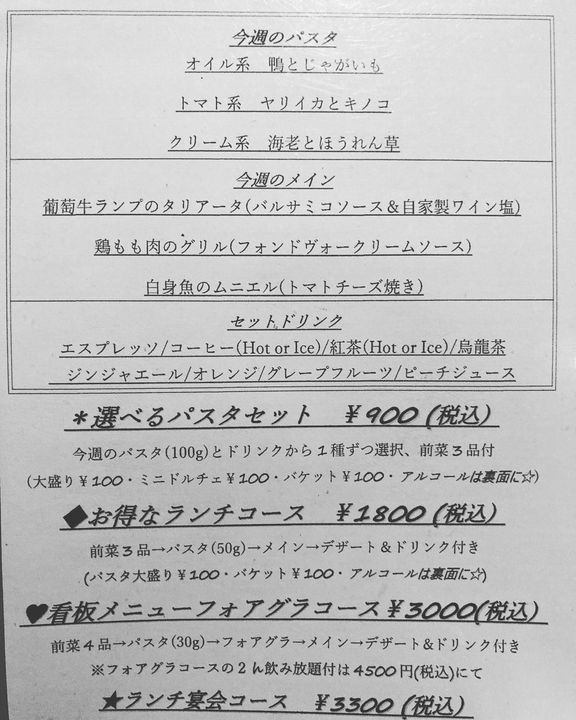 今週のパスタ
オイル系　鴨とじゃがいも
トマト系　ヤリイカとキノコ
クリーム系　海老とほうれん草
今週のメイン
葡萄牛ランプのタリアータ(バルサミコソース＆自家製ワイン塩)
鶏もも肉のグリル(フォンドヴォークリームソース)
白身魚のムニエル(トマトチーズ焼き)
セットドリンク
エスプレッソ/コーヒー(Hot or Ice)/紅茶(Hot or Ice)/烏龍茶
ジンジャエール/オレンジ/グレープフルーツ/ピーチジュース
＊選べるパスタセット　￥900 (税込)
今週のパスタ(100g)とドリンクから１種ずつ選択、前菜３品付
(大盛り￥100・ミニドルチェ￥100・バケット￥100・アルコールは裏面に☆)
◆お得なランチコース　￥1800 (税込)
前菜３品→パスタ(50g)→メイン→デザート＆ドリンク付き
(パスタ大盛り￥100・バケット￥100・アルコールは裏面に☆)
♥看板メニューフォアグラコース￥3000(税込)
前菜４品→パスタ(30g)→フォアグラ→メイン→デザート&ドリンク付き
※フォアグラコースの２ｈ飲み放題付は4500円(税込)にて
★ランチ宴会コース　￥3300 (税込)